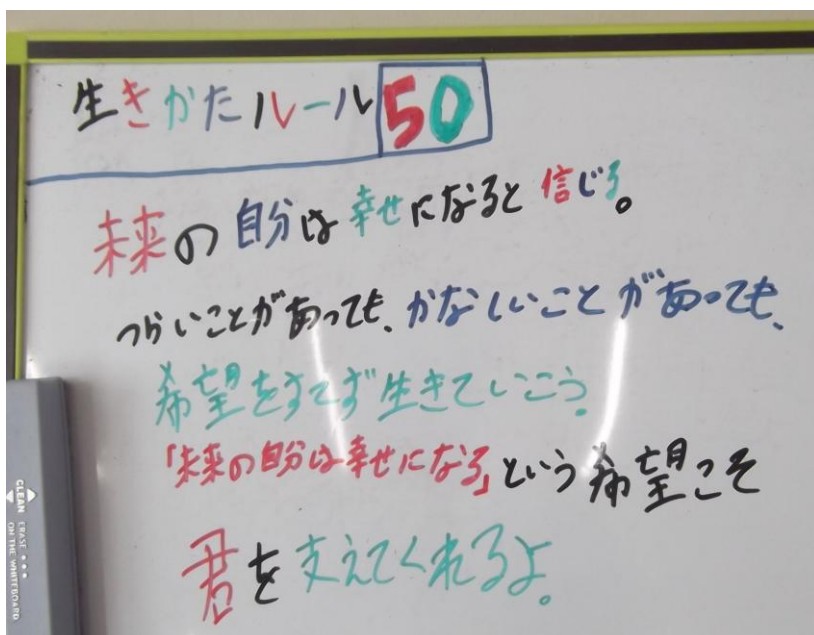 生きかたルール50
未来の自分は幸せになると信じる。
つらいことがあっても、かなしいことがあっても、
希望をすてず生きていこう。
「未来の自分は幸せになる」という希望こそ
君を支えてくれるよ。
CLEAN ERASE
ON THE WHITEBOARD